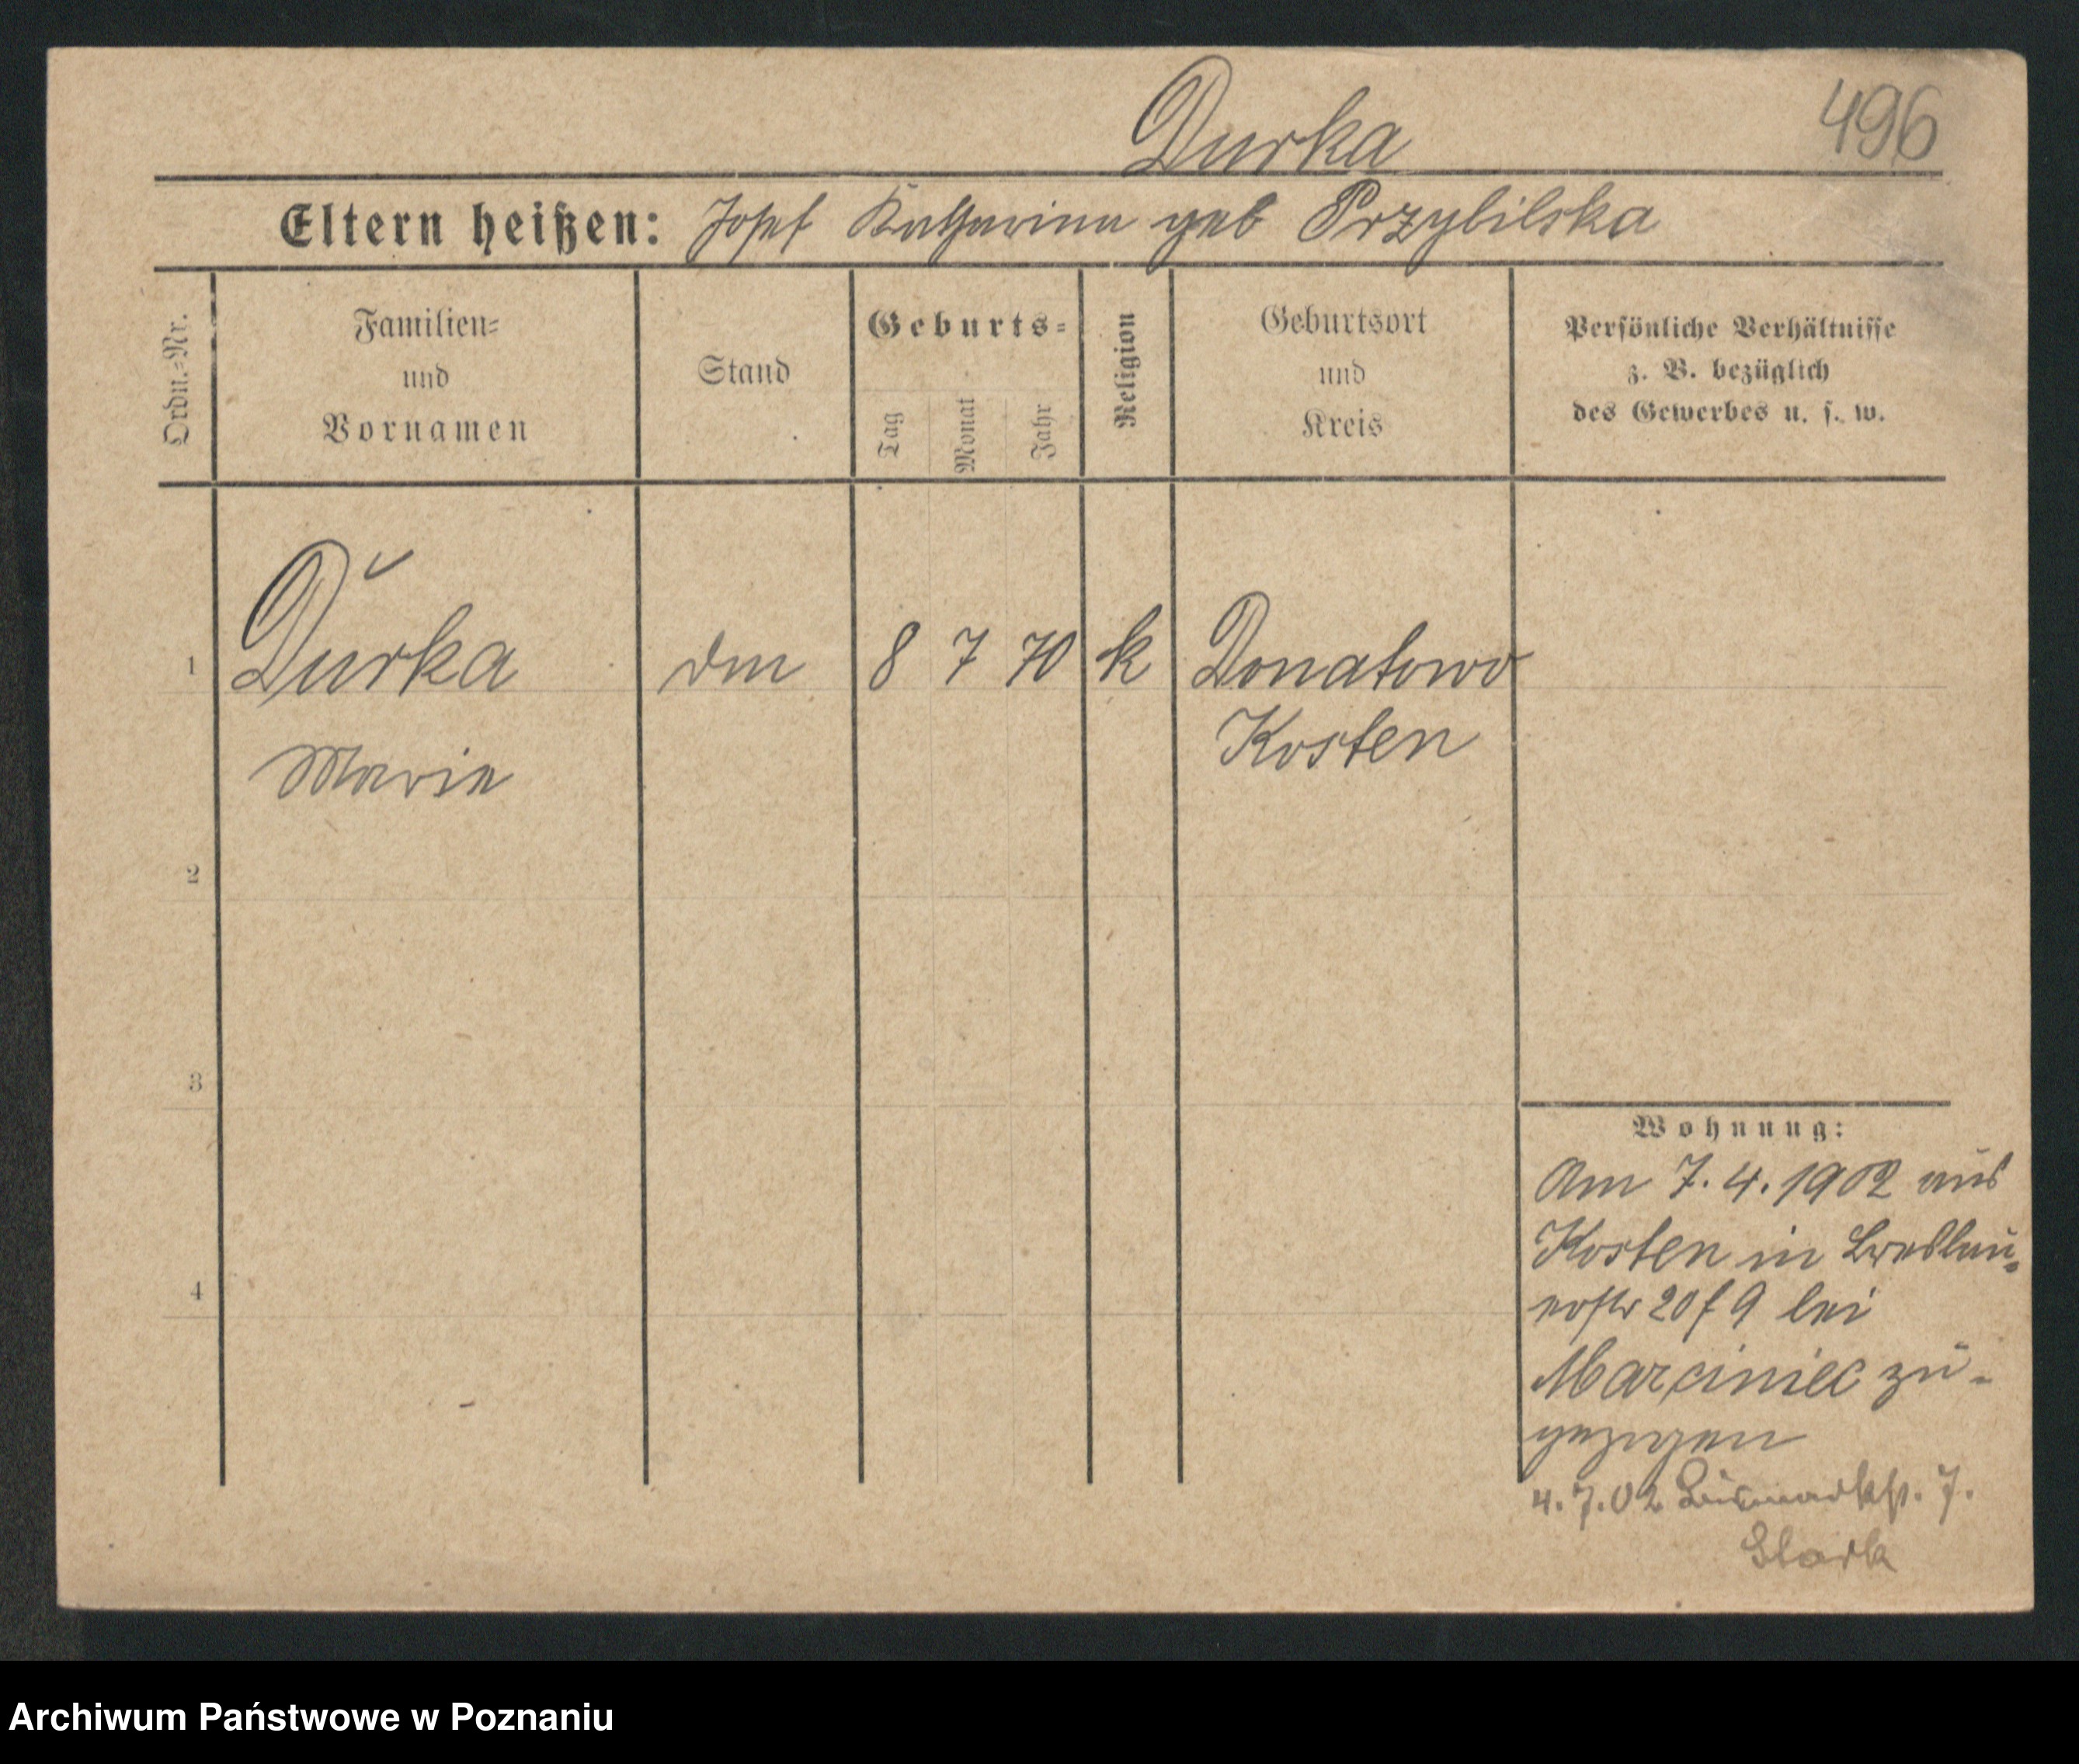 Durka
496
Eltern heißen: Josef Katharina geb Przybilska
Ordn.-Nr.
Familien-
und
Vornamen
Stand
Geburts-
Tag
Monat
Jahr
Religion
Geburtsort
und
Kreis
Persönliche Verhältnisse
z. B. bezüglich
des Gewerbes u. s. w.
1 Durka dm 8 7 70 k Donatowo
Kosten
Marie
2
3
4
Wohnung:
Am 7.4.1902 aus
Kosten in Breslau-
erstr 20 f 9 bei
Marciniec zu-
gezogen
4.7.02 Bismarckst. 7.
Stark
Archiwum Państwowe w Poznaniu